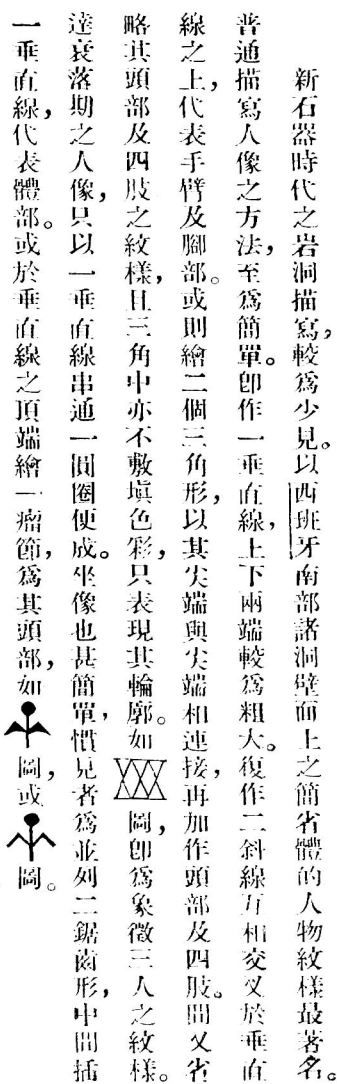 新石器時代之岩洞描寫，較爲少見。以西班牙南部諸洞壁面上之簡省體的人物紋樣最著名。
普通描寫人像之方法，至爲簡單。卽作一垂直線，上下兩端較爲粗大。復作二斜線互相交叉於垂直
線之上，代表手臂及腳部。或則繪二個三角形，以其尖端與尖端相連接，再加作頭部及四肢。間又省
略其頭部及四肢之紋樣，且三角中亦不敷塡色彩，只表現其輪廓。如圖，卽爲象徵三人之紋樣。
達衰落期之人像，只以一垂直線串通一圓圈便成。坐像也甚簡單，慣見者爲並列二鋸齒形，中間插
一垂直線，代表體部。或於垂直線之頂端繪一瘤節，爲其頭部，如圖，或圖。